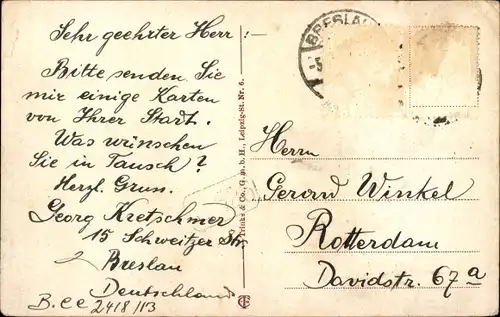 Sehr geehrter Herr :-
Bitte senden Sie
mir einige Karten
von Ihrer Stadt.
Was wünschen
Sie in Tausch?
Herzl. Gruss.
Georg Kretschmer
15 Schweitzer Str.
Breslau
Deutschland
B.ee 2418/13
Trinks & Co., G. m. b. H., Leipzig-St. Nr. 6.
BRESLAU
Herrn
Gerard Winkel
Rotterdam
Davidstr. 67a